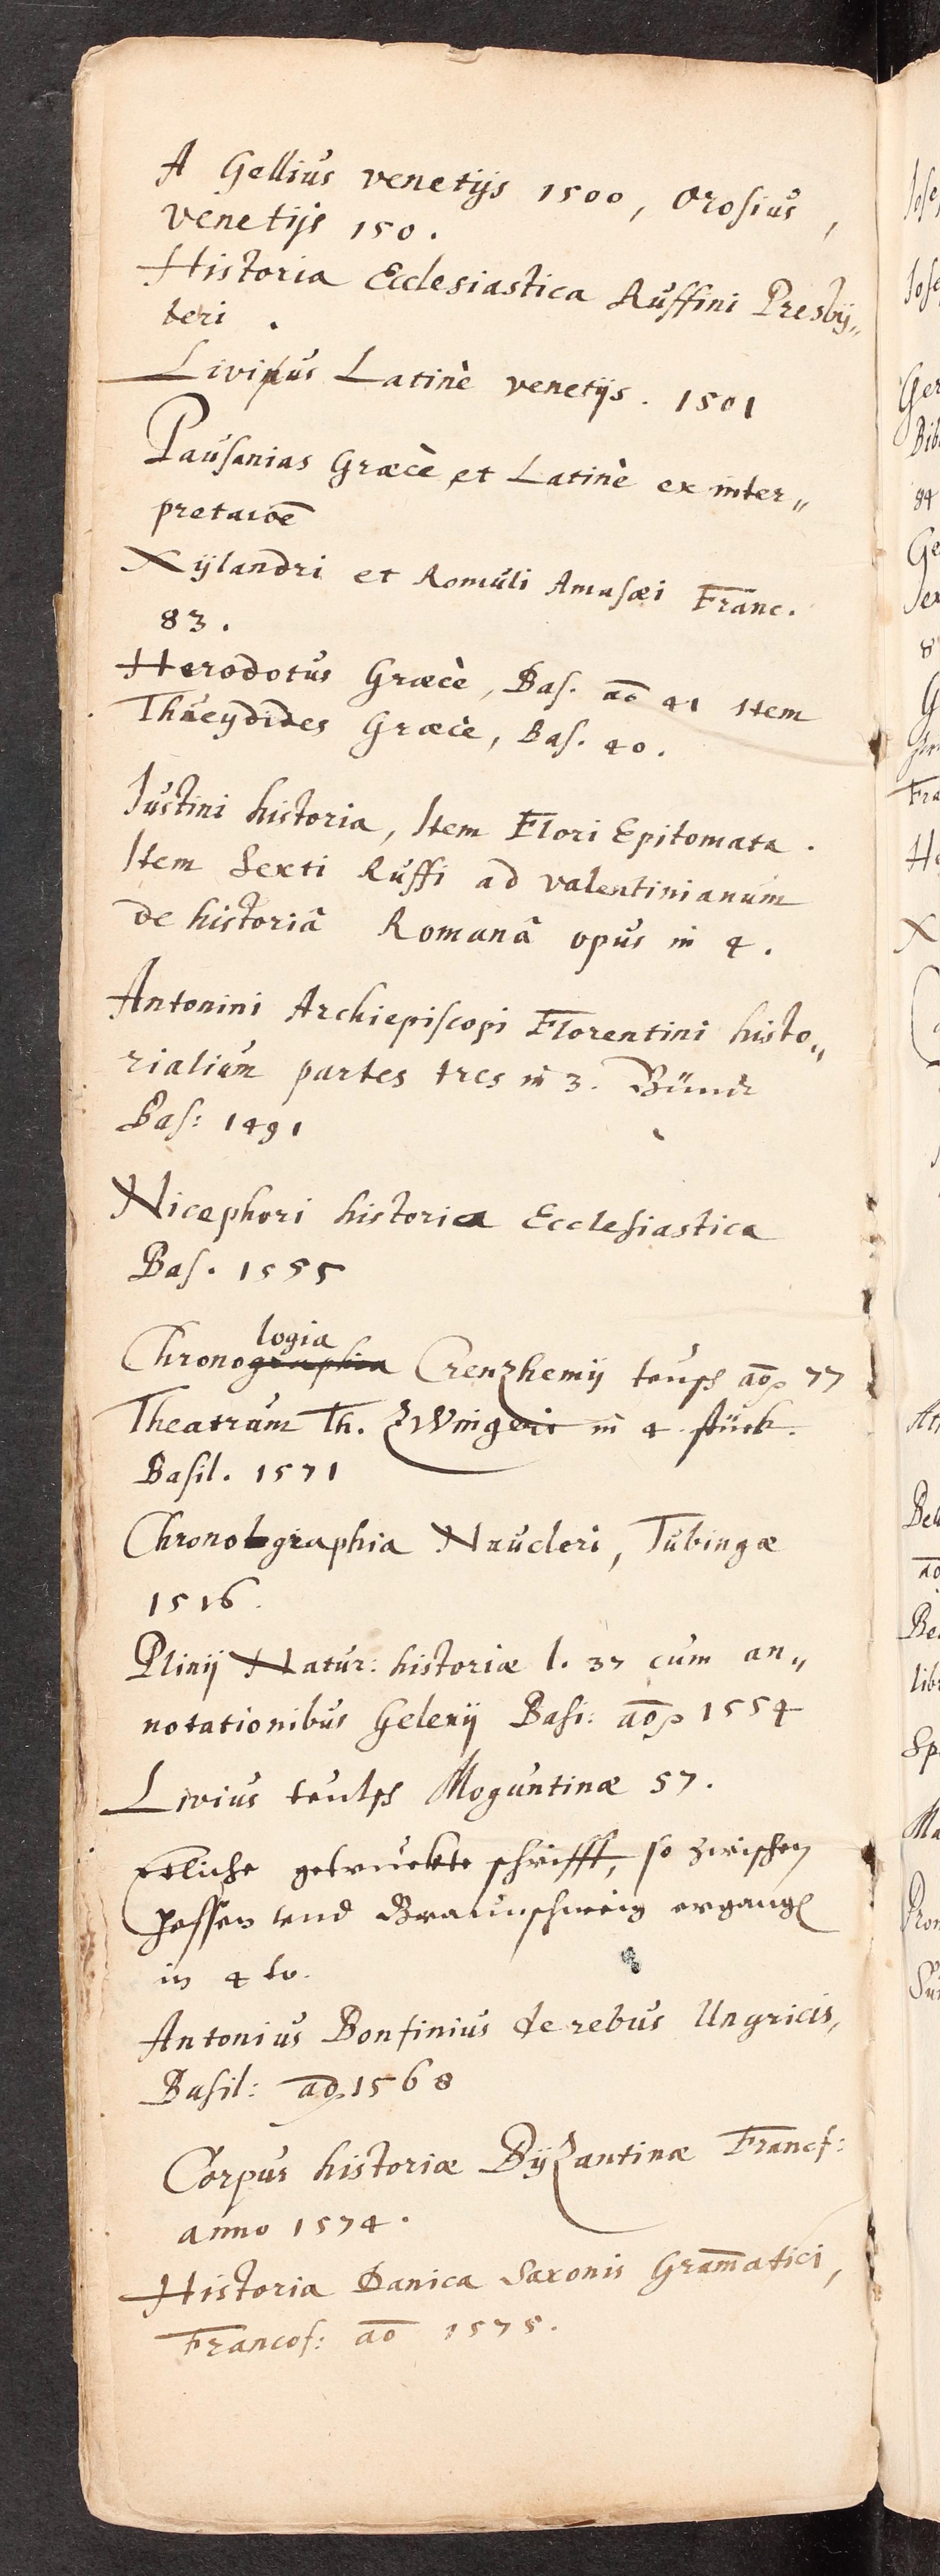 A Gellius venetijs 1500, Orosius,
venetijs 150.
Historia Ecclesiastica Ruffini Presby„
teri.
Livius Latinè venetijs. 1501
Pausanias Græcè et Latinè ex inter„
pretacōē
Xÿlandri et Romuli Amasæi Franc.
83.
Herodotus Græcè, Bas. aō 41 Item
Thucydides Græcè, Bas. 40.
Iustini historia, Item Flori Epitomata.
Item Sexti Ruffi ad valentinianum
de historiâ Romanâ opus in 4.
Antonini Archiepiscopi Florentini histo„
rialium partes tres in 3. Bünd
Bas: 1491
Nicephori historica Ecclesiastica
Bas. 1555
logia
Chronographia teusch aō 77
Theatrum Th. Zwingeri in 4 stück.
Basil. 1571
Chronographia Naucleri, Tubingæ
1516.
Plinij Natur: historiæ l. 37 cum an„
notationibus Gelenij Basi: aō 1554
Livius teutsch Moguntinæ 57.
etliche getruckte schrifft, so zwischen
Hessen vnd Braunschweig ergangen
in 4 to.
Antonius Bonfinius de rebus Ungricis,
Basil: aō 1568
Corpus historiæ Byzantinæ Francf:
anno 1574.
Historia Danica Saxonis Gram̄atici,
Francof: aō 1575.